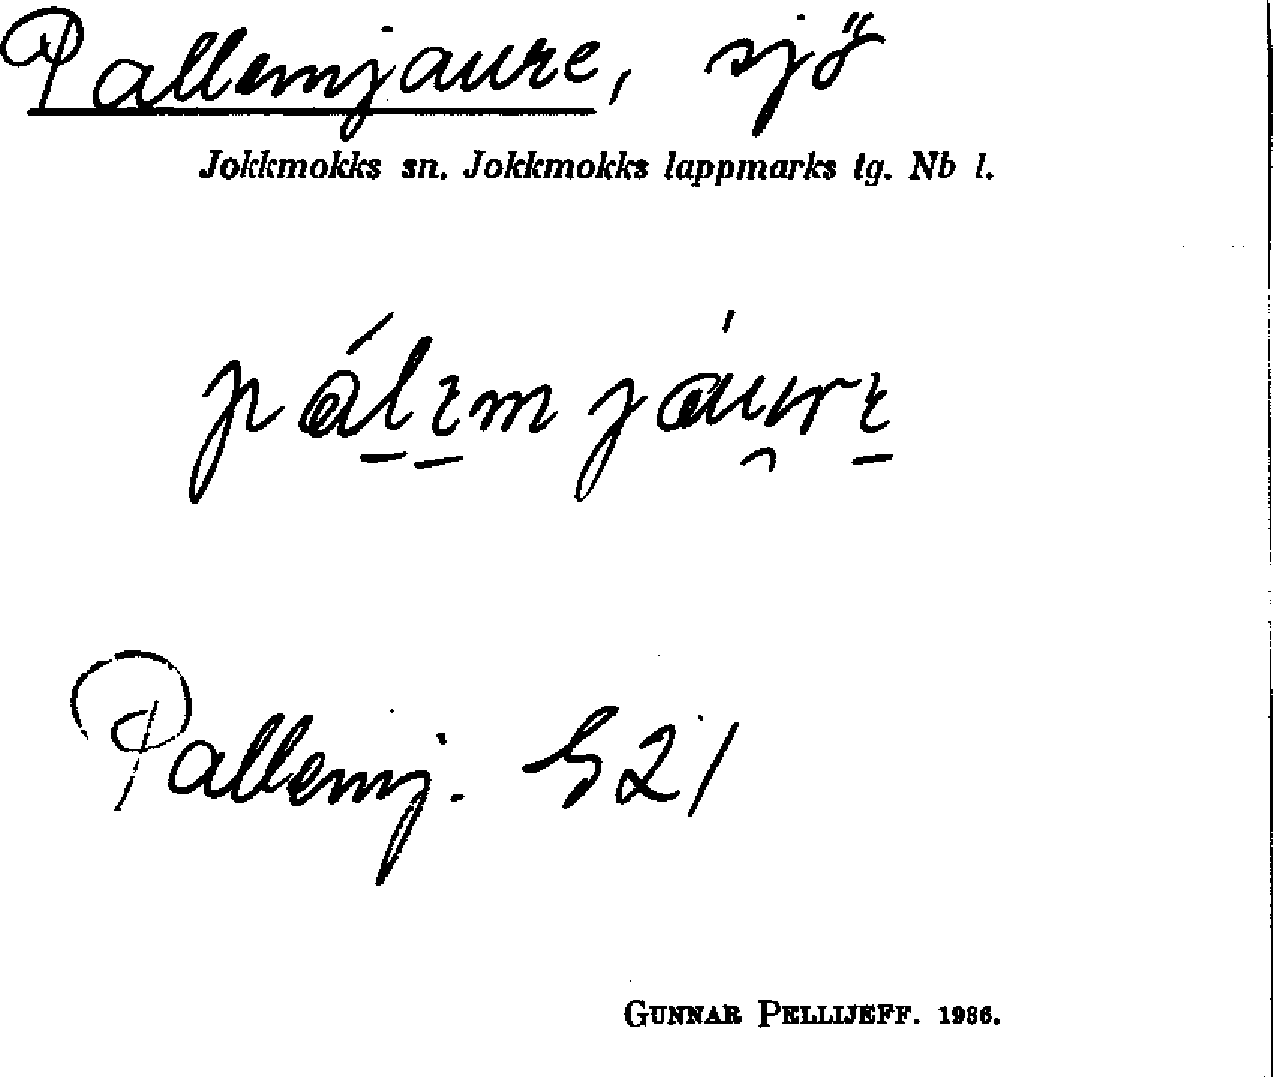 Pallemjaure, sjö
Jokkmokks sn. Jokkmokks lappmarks tg. Nb l.
pál̲e̲mjáu̯re̲
Pallemj. S21
GUNNAR PELLIJEFF. 1986.